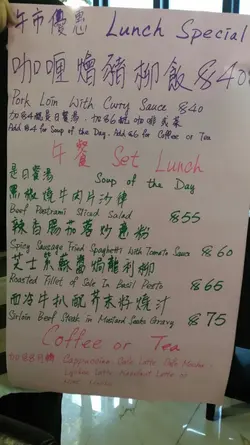 午市優惠 Lunch Special
咖喱燴豬柳飯 $40
Pork Loin With Curry Sauce $40
加$4配是日餐湯，加$6配咖啡或茶
Add $4 for Soup of the Day. Add $6 for Coffee or Tea
午餐 Set Lunch
是日餐湯 Soup of the Day
黑椒燒牛肉片沙律
Beef Pastrami Sliced Salad $55
辣香腸茄蓉炒意粉
Spicy Sausage Fried Spaghetti with Tomato Sauce $60
芝士紫蘇醬焗龍利柳
Roasted Fillet of Sole In Basil Pesto $65
西冷牛扒配芥末籽燒汁
Sirloin Beef Steak in Mustard Seeds Gravy $75
Coffee or Tea
Cappuccino, Cafe Latte, Cafe Mocha